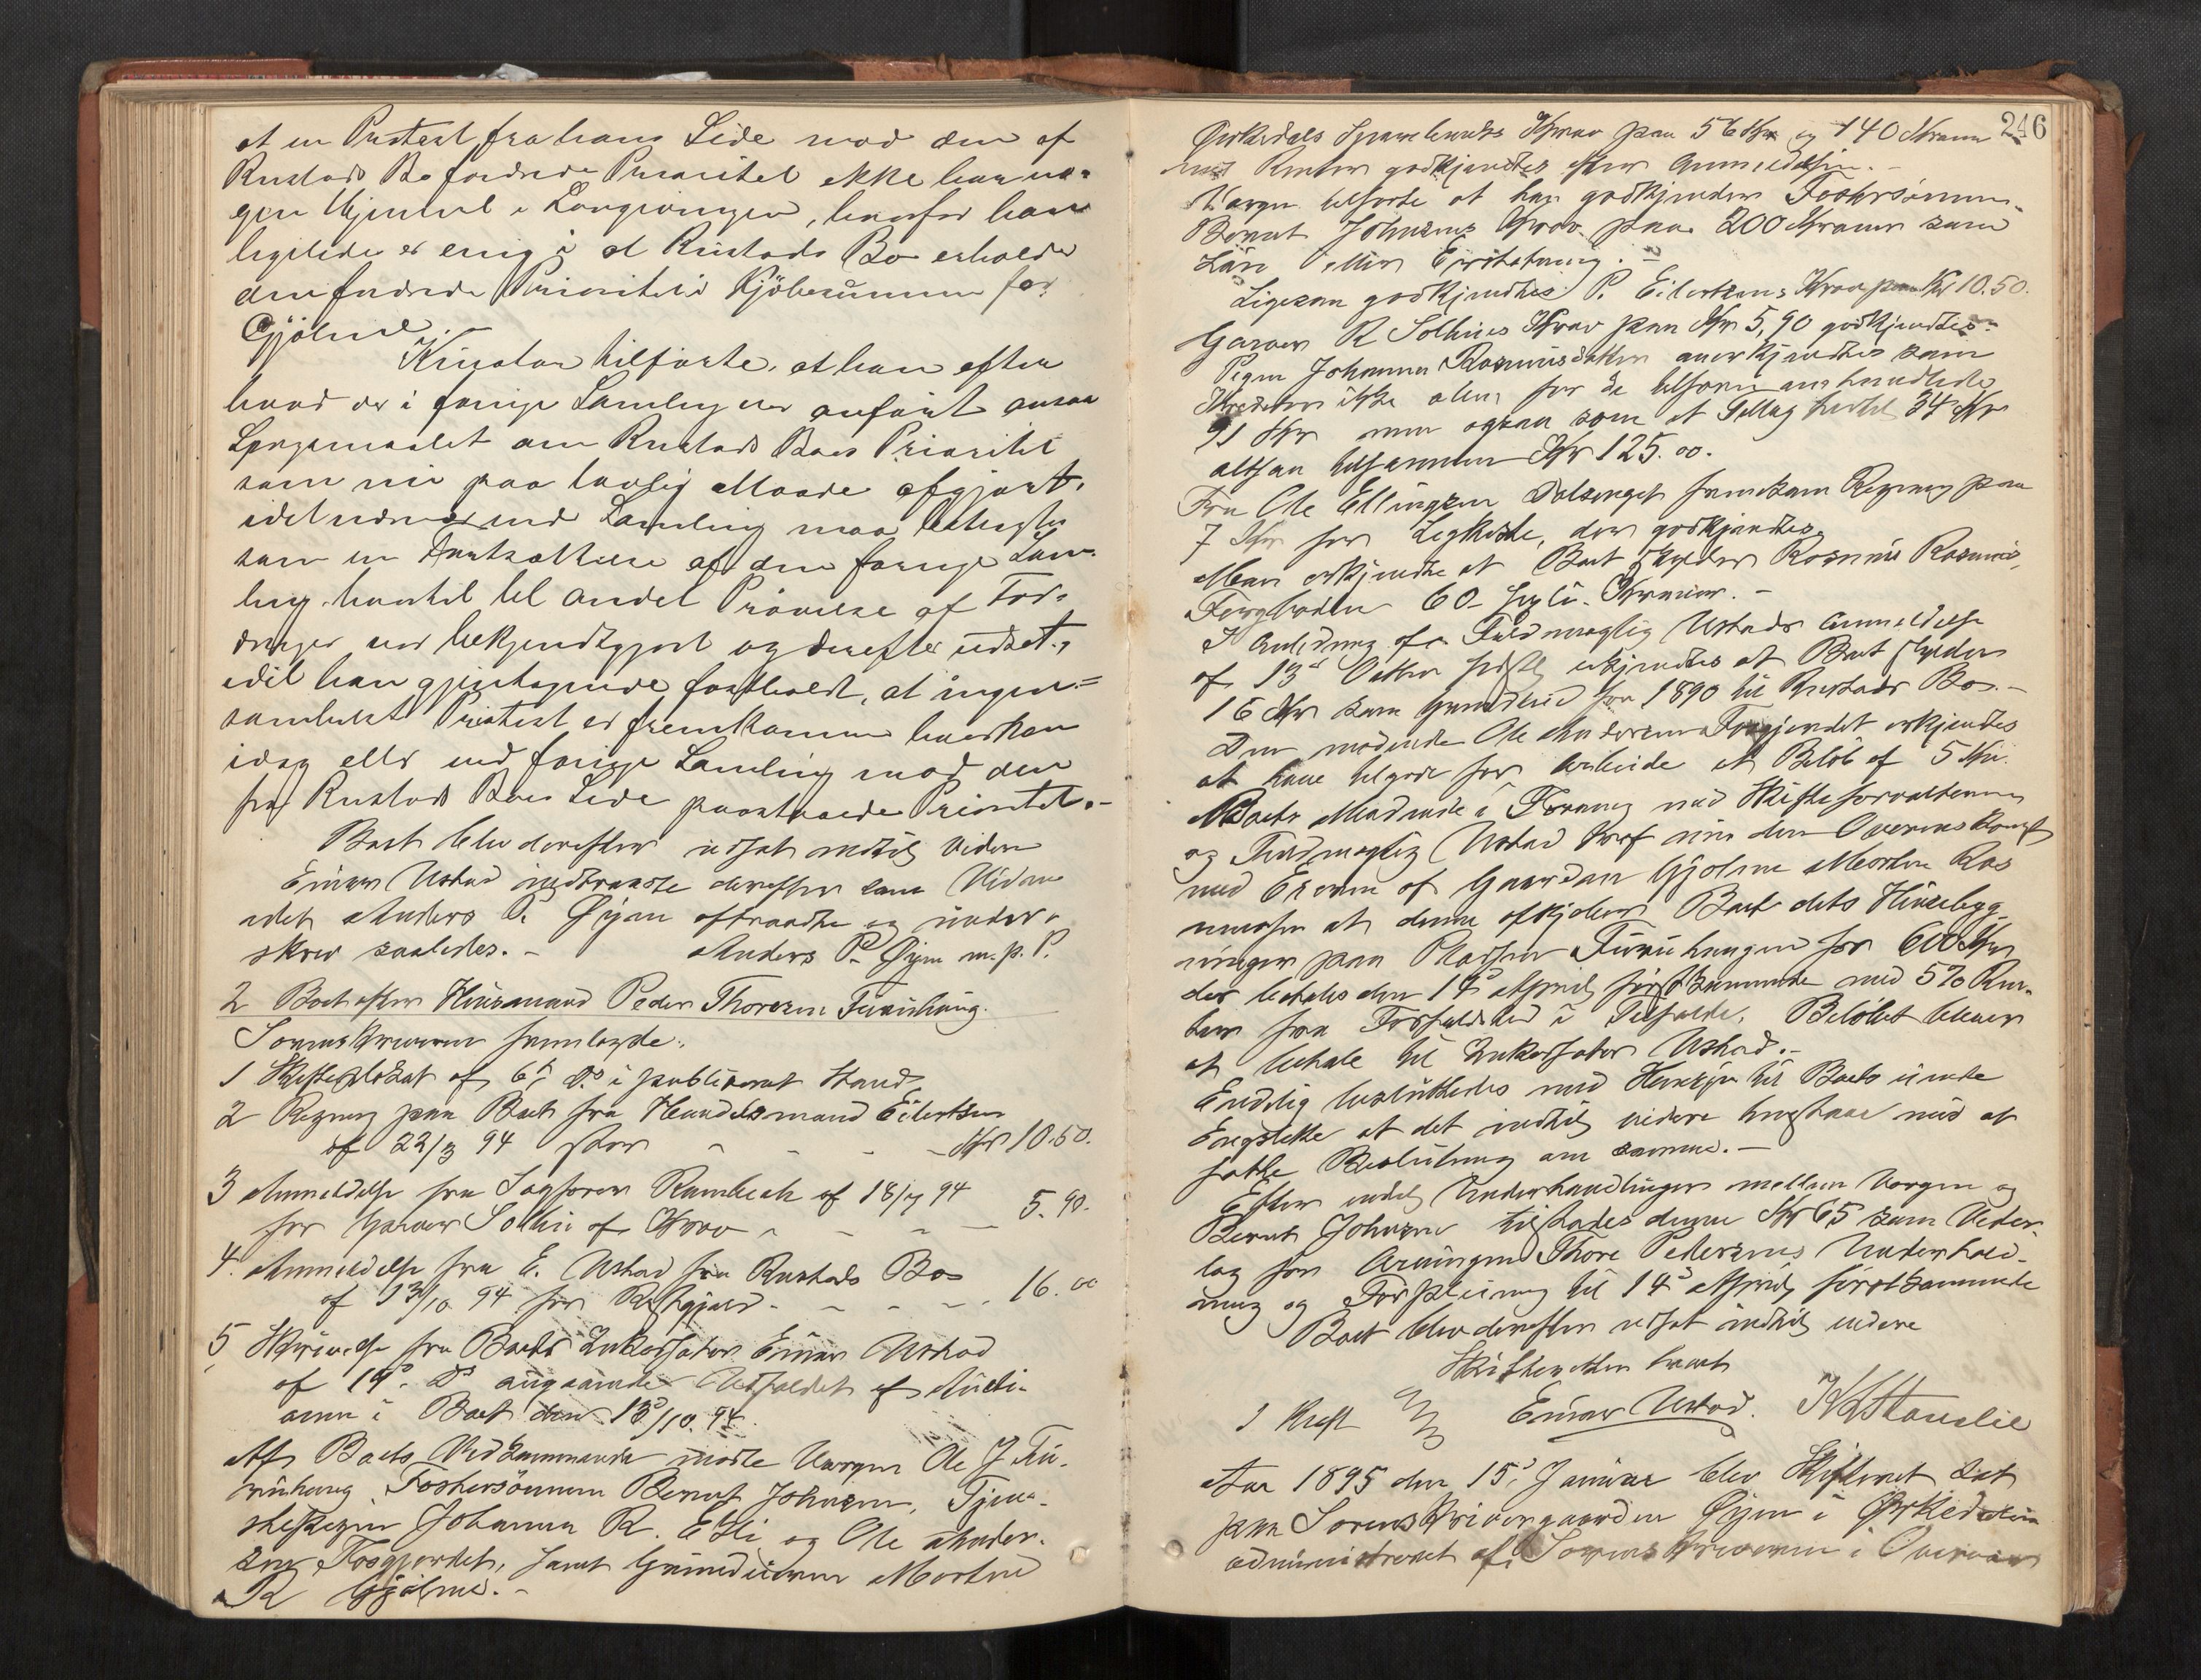 at en Protest fra hans Side mod den af
Rustads Bo fordrede Prioritet ikke har no-
gen Hjemmel i Lovgivningen, hvorfor han
ligeledes er enig i at Rustads Bo erholder
den fordrede Prioritet i Kjöbesummen for
Gjölme.-
Kurator tilförte, at han efter
hvad der i forrige Samling var anfört ansaa
Spörgsmaalet om Rustads Boes Prioritet
som nu paa lovlig Maade afgjort,
idet nærværende Samling maa betragtes
som en Fortsættelse af den forrige Sam-
ling, hvortil til andet Prövelse af For-
dringer var bekjendtgjort og derefter udsat,
idet han gjentagende fastholdt, at ingen-
somhelst Protest er fremkommen hverken
idag eller ved forrige Samling mod den
fra Rustads Boes Side paastaaede Prioritet.-
Boet blev derefter udsat indtil videre
Einar Ustad indtraadte derefter som Vidne
idet Anders P. Öyen aftraadte og under-
skrev saaledes.- Anders P. Öyen m. p. P.
2 Boet efter Husmand Peder Thoresen Furuhaug.
Sorenskriveren fremlagde:
1 Skifteplakat af 6te Ds i publiceret Stand.
2 Regning paa Boet fra Handelsmand Eilertsen
af 22/3 94 stor - - - - Kr 10.50.
3 Anmeldelse fra Sagförer Rambech af 18/7 94
for Garver Solli af Krav - - - - 5.90.
4. Anmeldelse fra E. Ustad fra Rustads Bo
af 13/10 94 for - - - - 16.00
5, Skrivelse fra Boets Inkassator Einar Ustad
af 19de Ds angaaende Udfaldet af Auktio-
nen i Boet den 13/10.94.
Af Boets Vedkommende mödte Værgen Ole J. Fu-
ruhaug, Fostersönnen Bernt Johnsen, Tjene-
stepigen Johanna R. Elli og Ole Ander-
sen Fosgjerdet, samt Grundeieren Morten
R Gjölme.-
246
Örkedals Sparebanks Krav paa 56 Kr og 140 Kroner
med Renter godkjendtes efter Anmeldelsen.-
Værgen tilförte at han godkjender Fostersönnen
Bernt Johnsens Krav paa 200 Kroner som
Lön eller Erstatning.-
Ligesaa godkjendtes P. Eilertsens Krav paa Kr 10.50.
Garver R Sollies Krav paa Kr 5,90 godkjendtes.-
Pigen Johanna Rasmusdatter anerkjendtes som
Kreditor ikke alene for de tilforn anmeldte
91 Kr men ogsaa som et Tillæg hertil 34 Kr
altsaa tilsammen Kr 125.00.
Fra Ole Ellingsen Dalsenget fremkom Regning paa
7 Kr for Ligkiste, der godkjendtes.
Man erkjendte at Boet skylder Rasmus Rasmus.
60 - sexti - Kroner.-
I Anledning af Fuldmægtig Ustads Anmeldelse
af 13de Oktbr sidstl erkjendtes at Boet skylder
16 Kr som for 1890 til Rustads Bo.-
Den mödende Ole Andersen Fosgjerdet erkjendtes
at have tilgode for Arbeide et Belöb af 5 Kr.
Boets Mödende i Forening med Skifteforvalteren
og Fuldmægtig Ustad traf nu den Overenskomst
med Eieren af Gaarden Gjölme Morten Ras
mussen at denne afkjöber Boet dets Husebyg-
ninger paa Pladsen Furuhaugen for 600 Kr,
der betales den 14de April förstkommende med 5% Ren-
ter fra Forfaldstid i Tilfælde. Belöbet bliver
at betale til Inkassator Ustad.-
Endelig besluttedes med Hensyn til Boets
at det indtil videre med at
fatte Beslutning om samme.-
Efter endel Underhandlinger mellem Værgen og
Bernt Johnsen tilstodes denne Kr 65 som Veder
lag for Arvingen Thore Pedersens Underhold-
ning og Forpleining til 14de April förstkommende
Boet blev derefter udsat indtil videre
Skifteretten hævet
I Kraft Einar Ustad.
Aar 1895 den 15de Januar blev Skifteret sat
paa Sorenskrivergaarden Öyen i Örkedalen
administreret af Sorenskriveren i Overvær